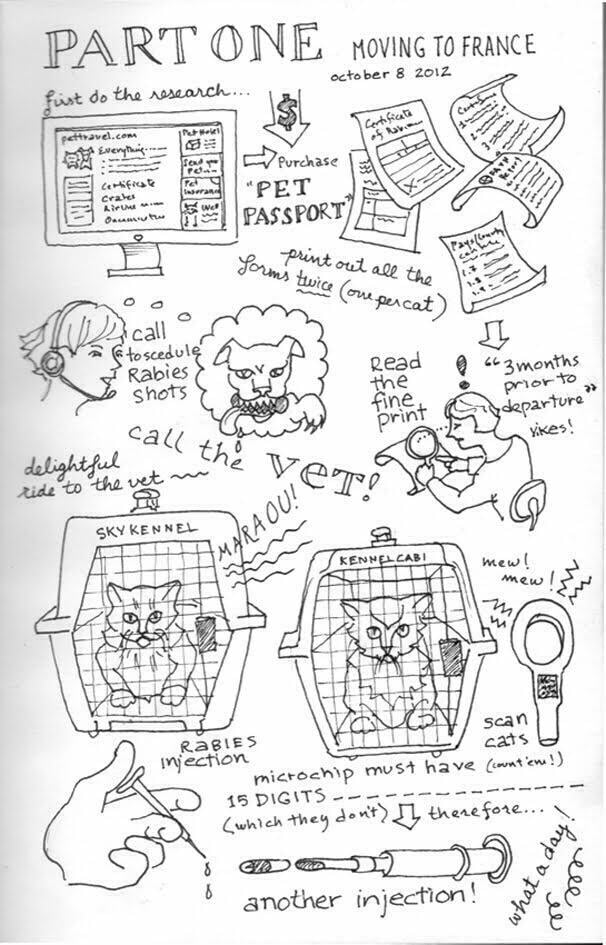 PART ONE
MOVING TO FRANCE
october 8 2012
first do the research...
pettravel.com
Everything...
Certificate
Crates
Pet Hotel
Send you
Pet...
Pet
Insurance
Vet
$
Purchase
"PET
PASSPORT"
Certificate
of
print out all the
forms twice (one per cat)
call
to scedule
Rabies
shots
Read
the
fine
print
!
"3 months
prior to
departure"
yikes!
call the VET!
delightful
ride to the vet
MARAOU!
SKY KENNEL
KENNEL CABI
mew!
mew!
scan
cats
(count'em!)
RABIES
injection
microchip must have
15 DIGITS
(which they don't)
therefore...
another injection!
what a day!